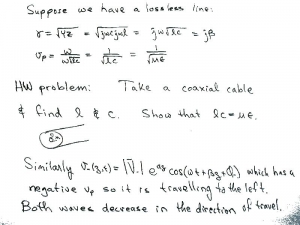 Suppose we have a lossless line:
γ = √YZ = √jωcjωl = jω√lc = jβ
Vp = ω/ω√lc = 1/√lc = 1/√με
HW problem: Take a coaxial cable
& find l & c. Show that lc = με.
Similarly V-(z,t) = |V-| e^αz cos(ωt+βz+θ-) which has a
negative Vp so it is travelling to the left.
Both waves decrease in the direction of travel.